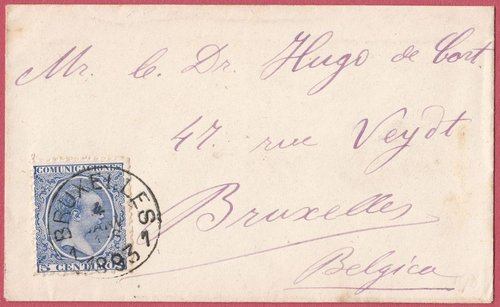 Mr. C. Dr. Hugo de Cort.
47. rue Veydt
Bruxelles
Belgica
COMUNICACIONES
5 CENTIMOS
BRUXELLES 1
4
JANV
1893